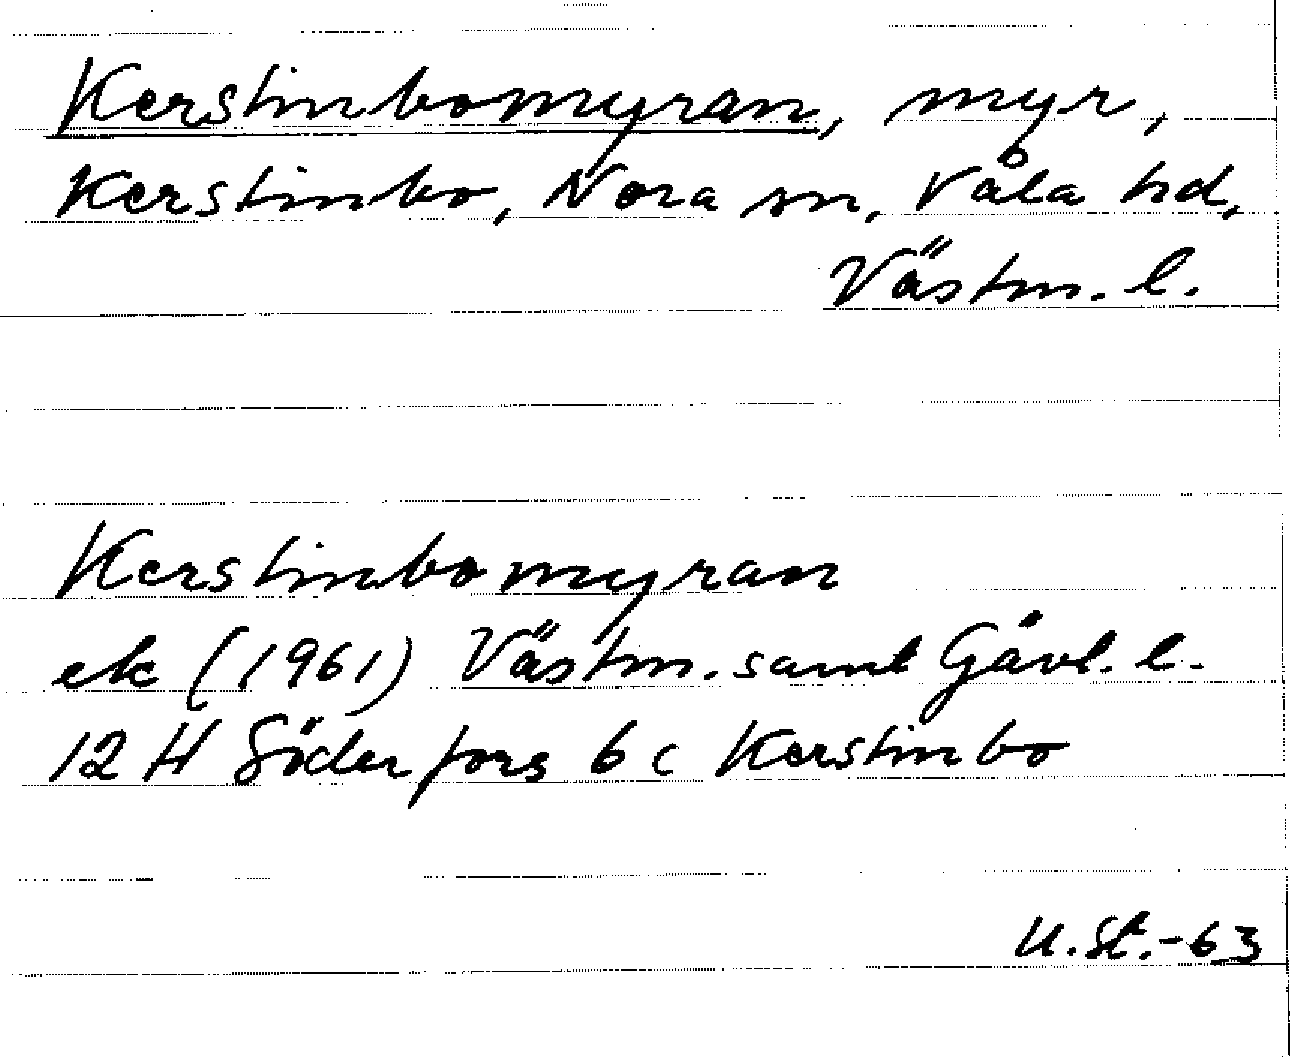 Kerstinbomyran, myr,
Kerstinbo, Nora sn, Våla hd,
Västm. l.
Kerstinbomyran
ek (1961) Västm. samt Gävl. l.
12 H Söderfors 6 c Kerstinbo
U. St. -63